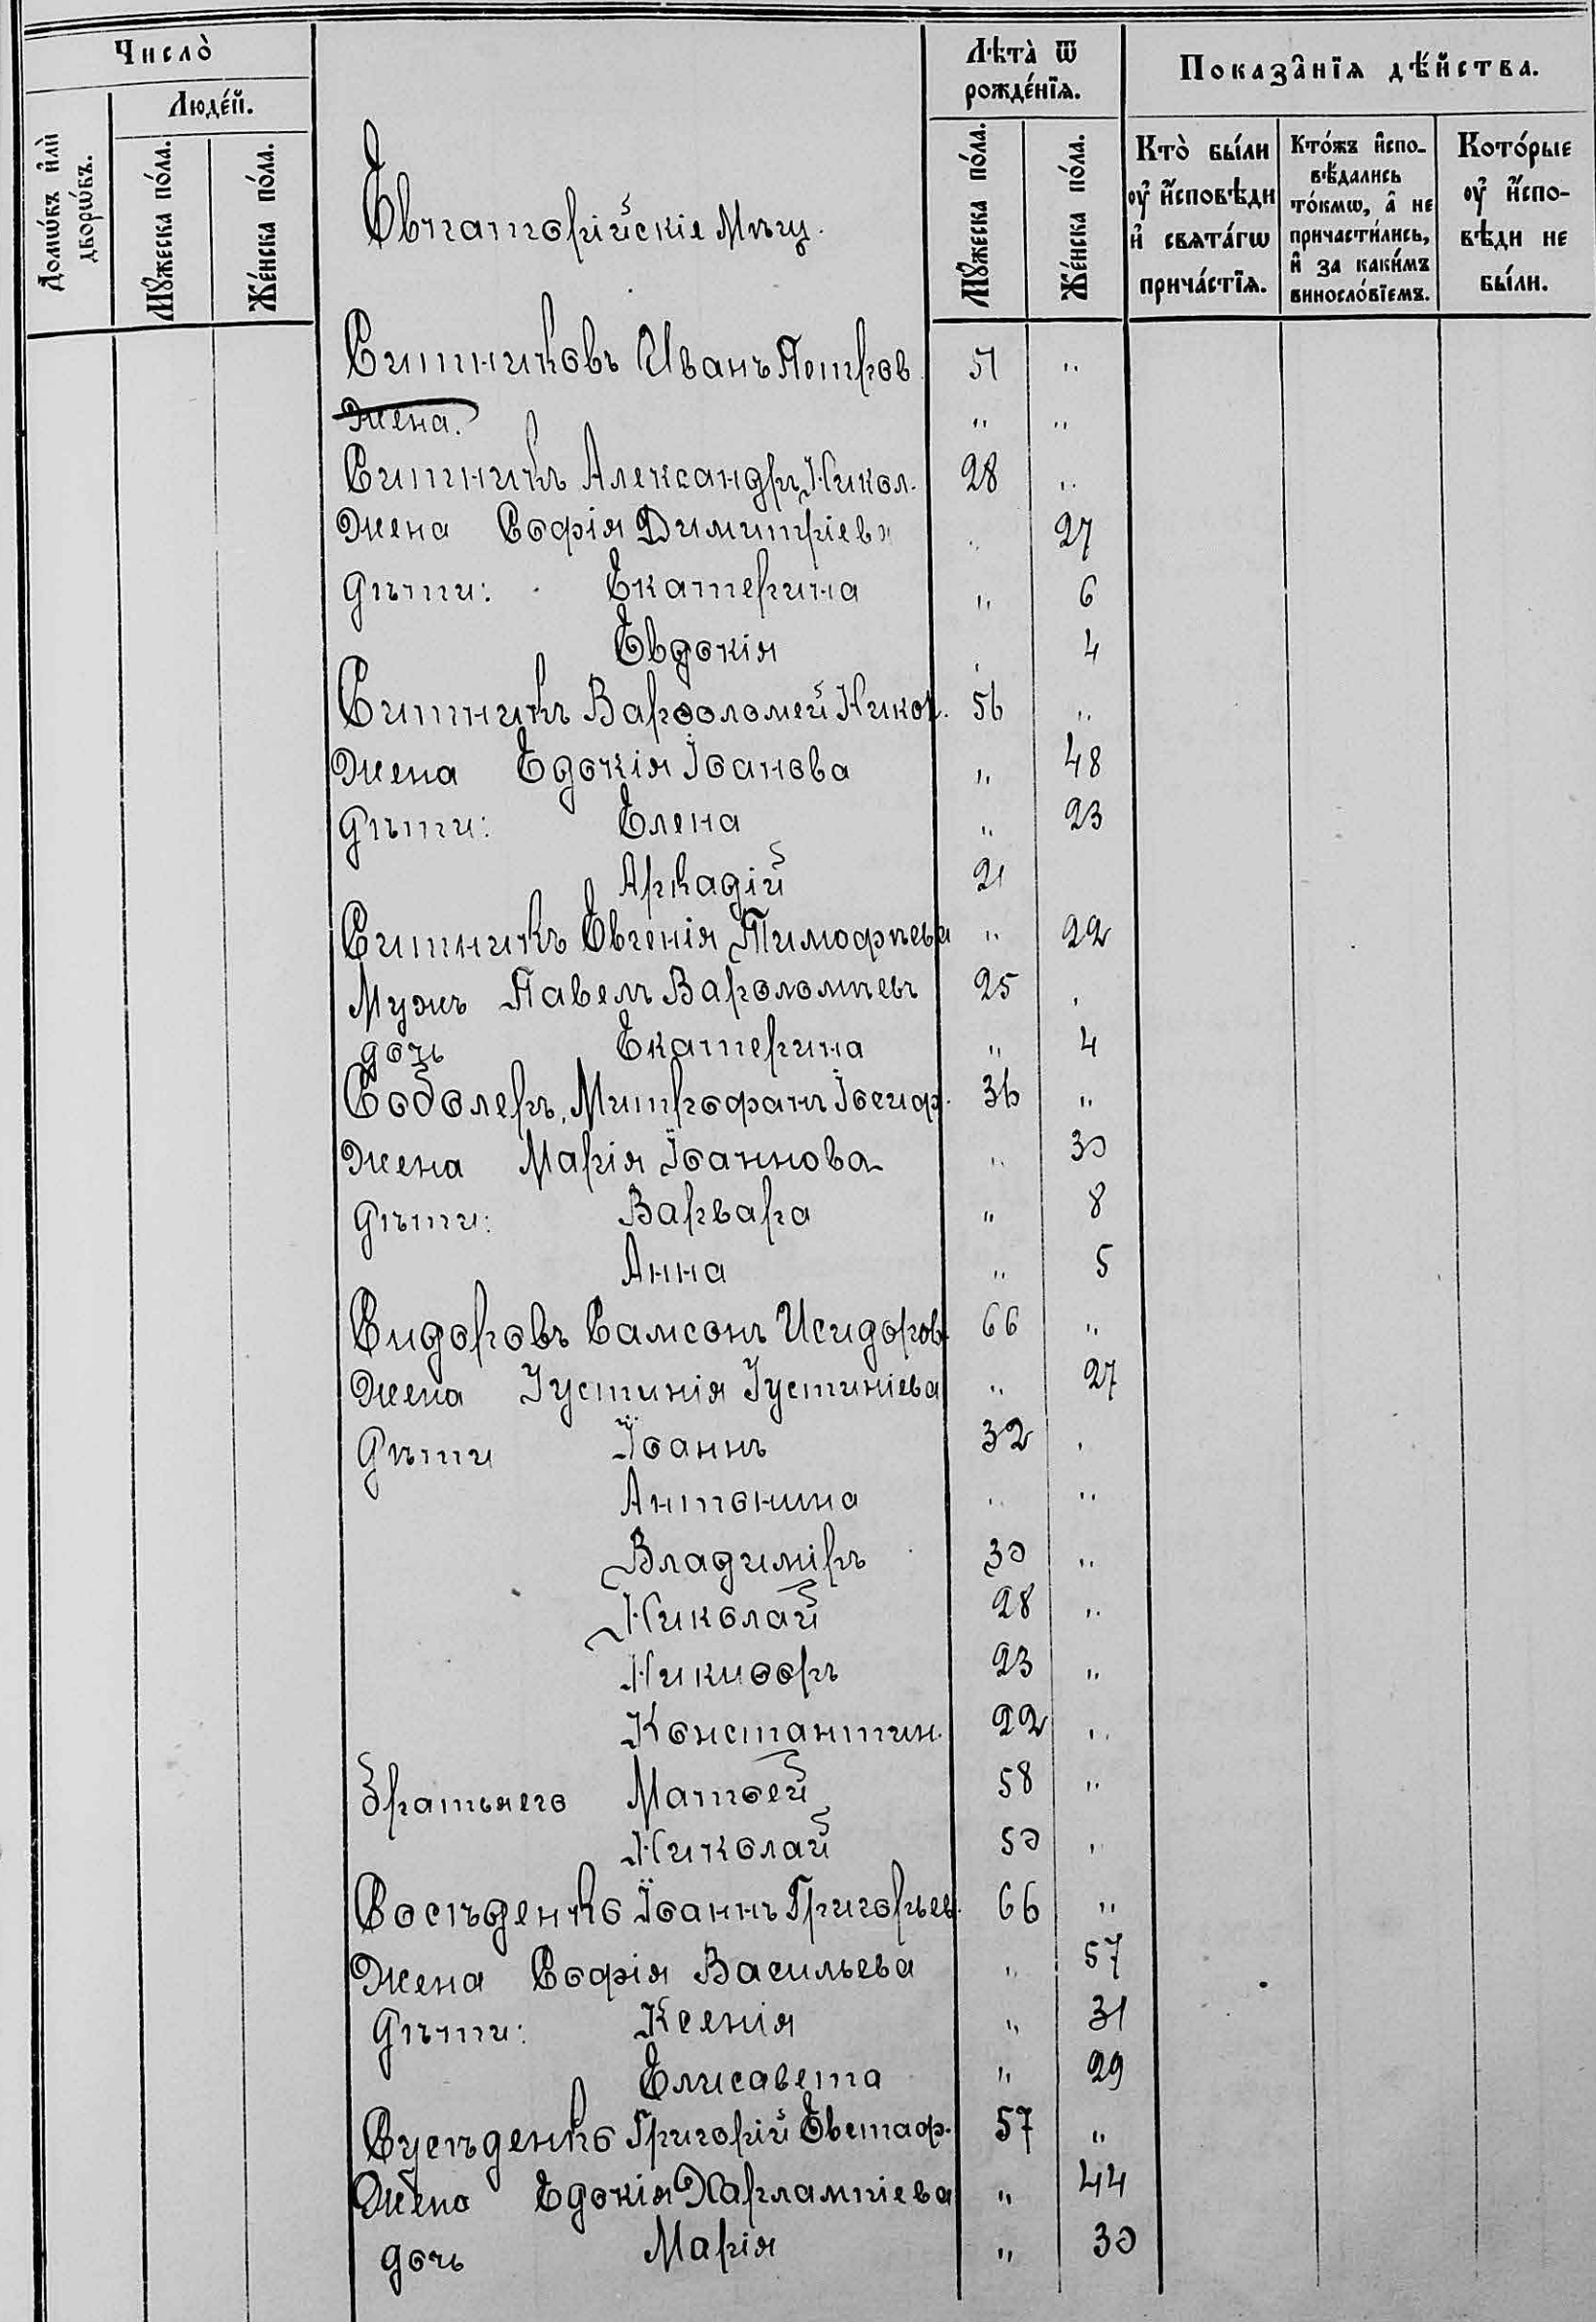 Число̀
Люде́й.
Домѡ́въ и҆лѝ дворѡ́въ.
Мꙋ́жеска по́ла.
Же́нска по́ла.
Лѣта̀ ѿ рожде́нїѧ.
Мꙋ́жеска по́ла.
Же́нска по́ла.
Показа̑нїѧ дѣ́йства.
Кто̀ бы́ли ᲂу҆ и҆́сповѣди и҆ свѧта́гѡ прича́стїѧ.
Кто́жъ и҆спо-вѣ́дались то́кмѡ, а҆ не причасти́лись, и҆ за каки́мъ винословїемъ.
Кото́рые ᲂу҆ и҆́спо-вѣди не бы́ли.
Евпаторійскіе Мѣщ.
Ситниковъ Иванъ Петров 51 "
Жена. " "
Ситникъ Александръ Никол. 28 "
Жена Софія Димитріев" " 27
дѣти: Екатерина " 6
Евдокія " 4
Ситникъ Варѳоломей Никол. 56 "
Жена Едокія Іоанова " 48
дѣти: Елена " 23
Аркадій 21
Ситникъ Евгенія Тимофѣева " 22
Мужъ Павелъ Вароломѣевъ 25 "
дочь Екатерина " 4
Соболеръ Митрофанъ Іосиф. 36 "
Жена Марія Іоаннова " 30
дѣти: Варвара " 8
Анна " 5
Сидоровъ Самсонъ Исидоров. 66 "
Жена Іустинія Іустиніева " 27
Дѣти Іоаннъ 32 "
Антонина " "
Владиміръ 30 "
Николай 28 "
Никиѳоръ 23 "
Константин. 22 "
братья его Матѳей 58 "
Николай 50 "
Восѣденко Іоаннъ Григорьев. 66 "
Жена Софія Васильева " 57
дѣти: Ксенія " 31
Елисавета " 29
Сусѣденко Григорій Евстаф. 57 "
Жена Едокія Харлампіева " 44
дочь Марія " 30